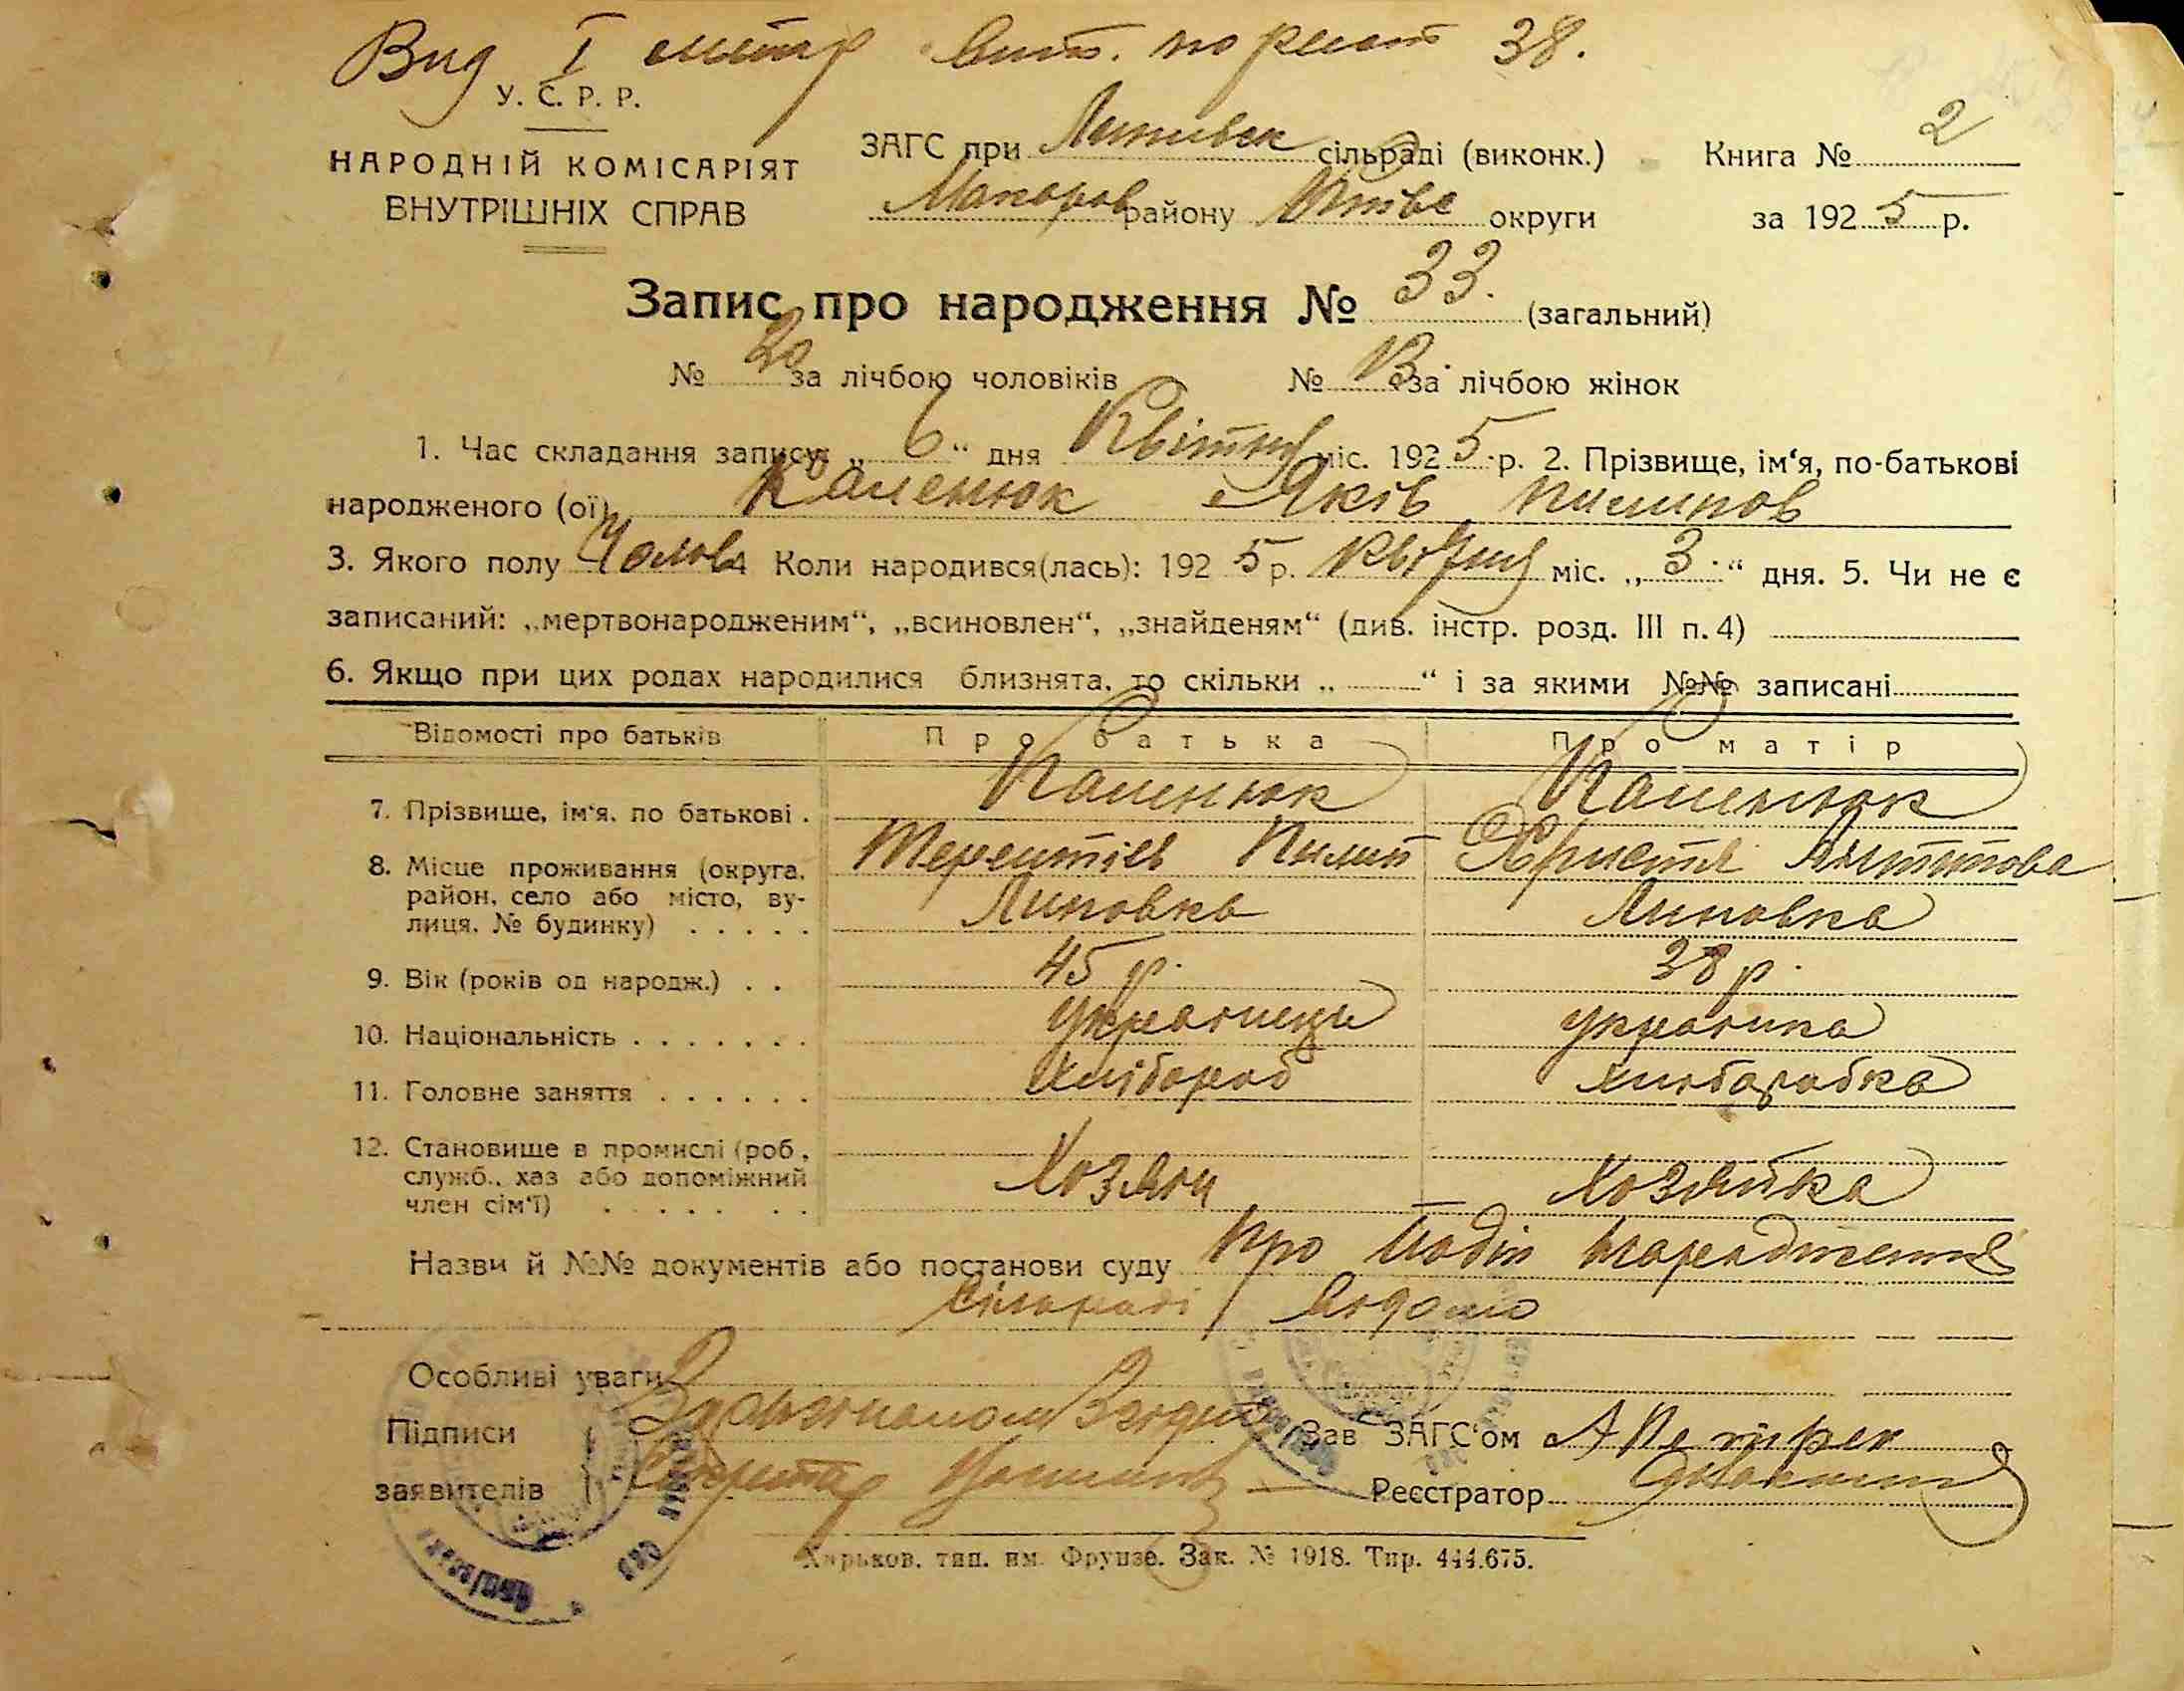 Вид I метр вит. по реест 38.
У. С. Р. Р.
НАРОДНІЙ КОМІСАРІЯТ
ВНУТРІШНІХ СПРАВ
ЗАГС при Липивск сільраді (виконк.)
Макаров району Київс округи
Книга № 2
за 1925 р.
Запис про народження № 33. (загальний)
№ 20 за лічбою чоловіків № 13 за лічбою жінок
1. Час складання запису: „ 6 “ дня Квітня міс. 1925 р. 2. Прізвище, ім‘я, по-батькові
народженого (ої) Каленюк Яків Пилипов
3. Якого полу Чолов 4 Коли народився(лась): 1925 р. Квітня міс. „ 3 “ дня. 5. Чи не є
записаний: „мертвонародженим“, „всиновлен“, „знайденям“ (див. інстр. розд. III п. 4)
6. Якщо при цих родах народилися близнята, то скільки „ “ і за якими №№ записані
Відомості про батьків Про батька Про матір
7. Прізвище, ім‘я, по батькові . Каленюк Каленюк
Терентіев Пилип Христя
8. Місце проживання (округа,
район, село або місто, ву-
лиця, № будинку) . . . . . Липовка Липовка
9. Вік (років од народж.) . . 45 р. 38 р.
10. Національність . . . . . . . Українець Українка
11. Головне заняття . . . . . . Хлібороб хліборобка
12. Становище в промислі (роб.,
служб., хаз або допоміжний
член сім‘ї) . . . . . . . Хозяїн Хозяйка
Назви й №№ документів або постанови суду Про подію народження
сільраді відомо
Особливі уваги
Підписи
заявителів Секретар
Зав ЗАГС‘ом
Реєстратор
Харьков, тип. им. Фрунзе. Зак. № 1918. Тир. 444.675.